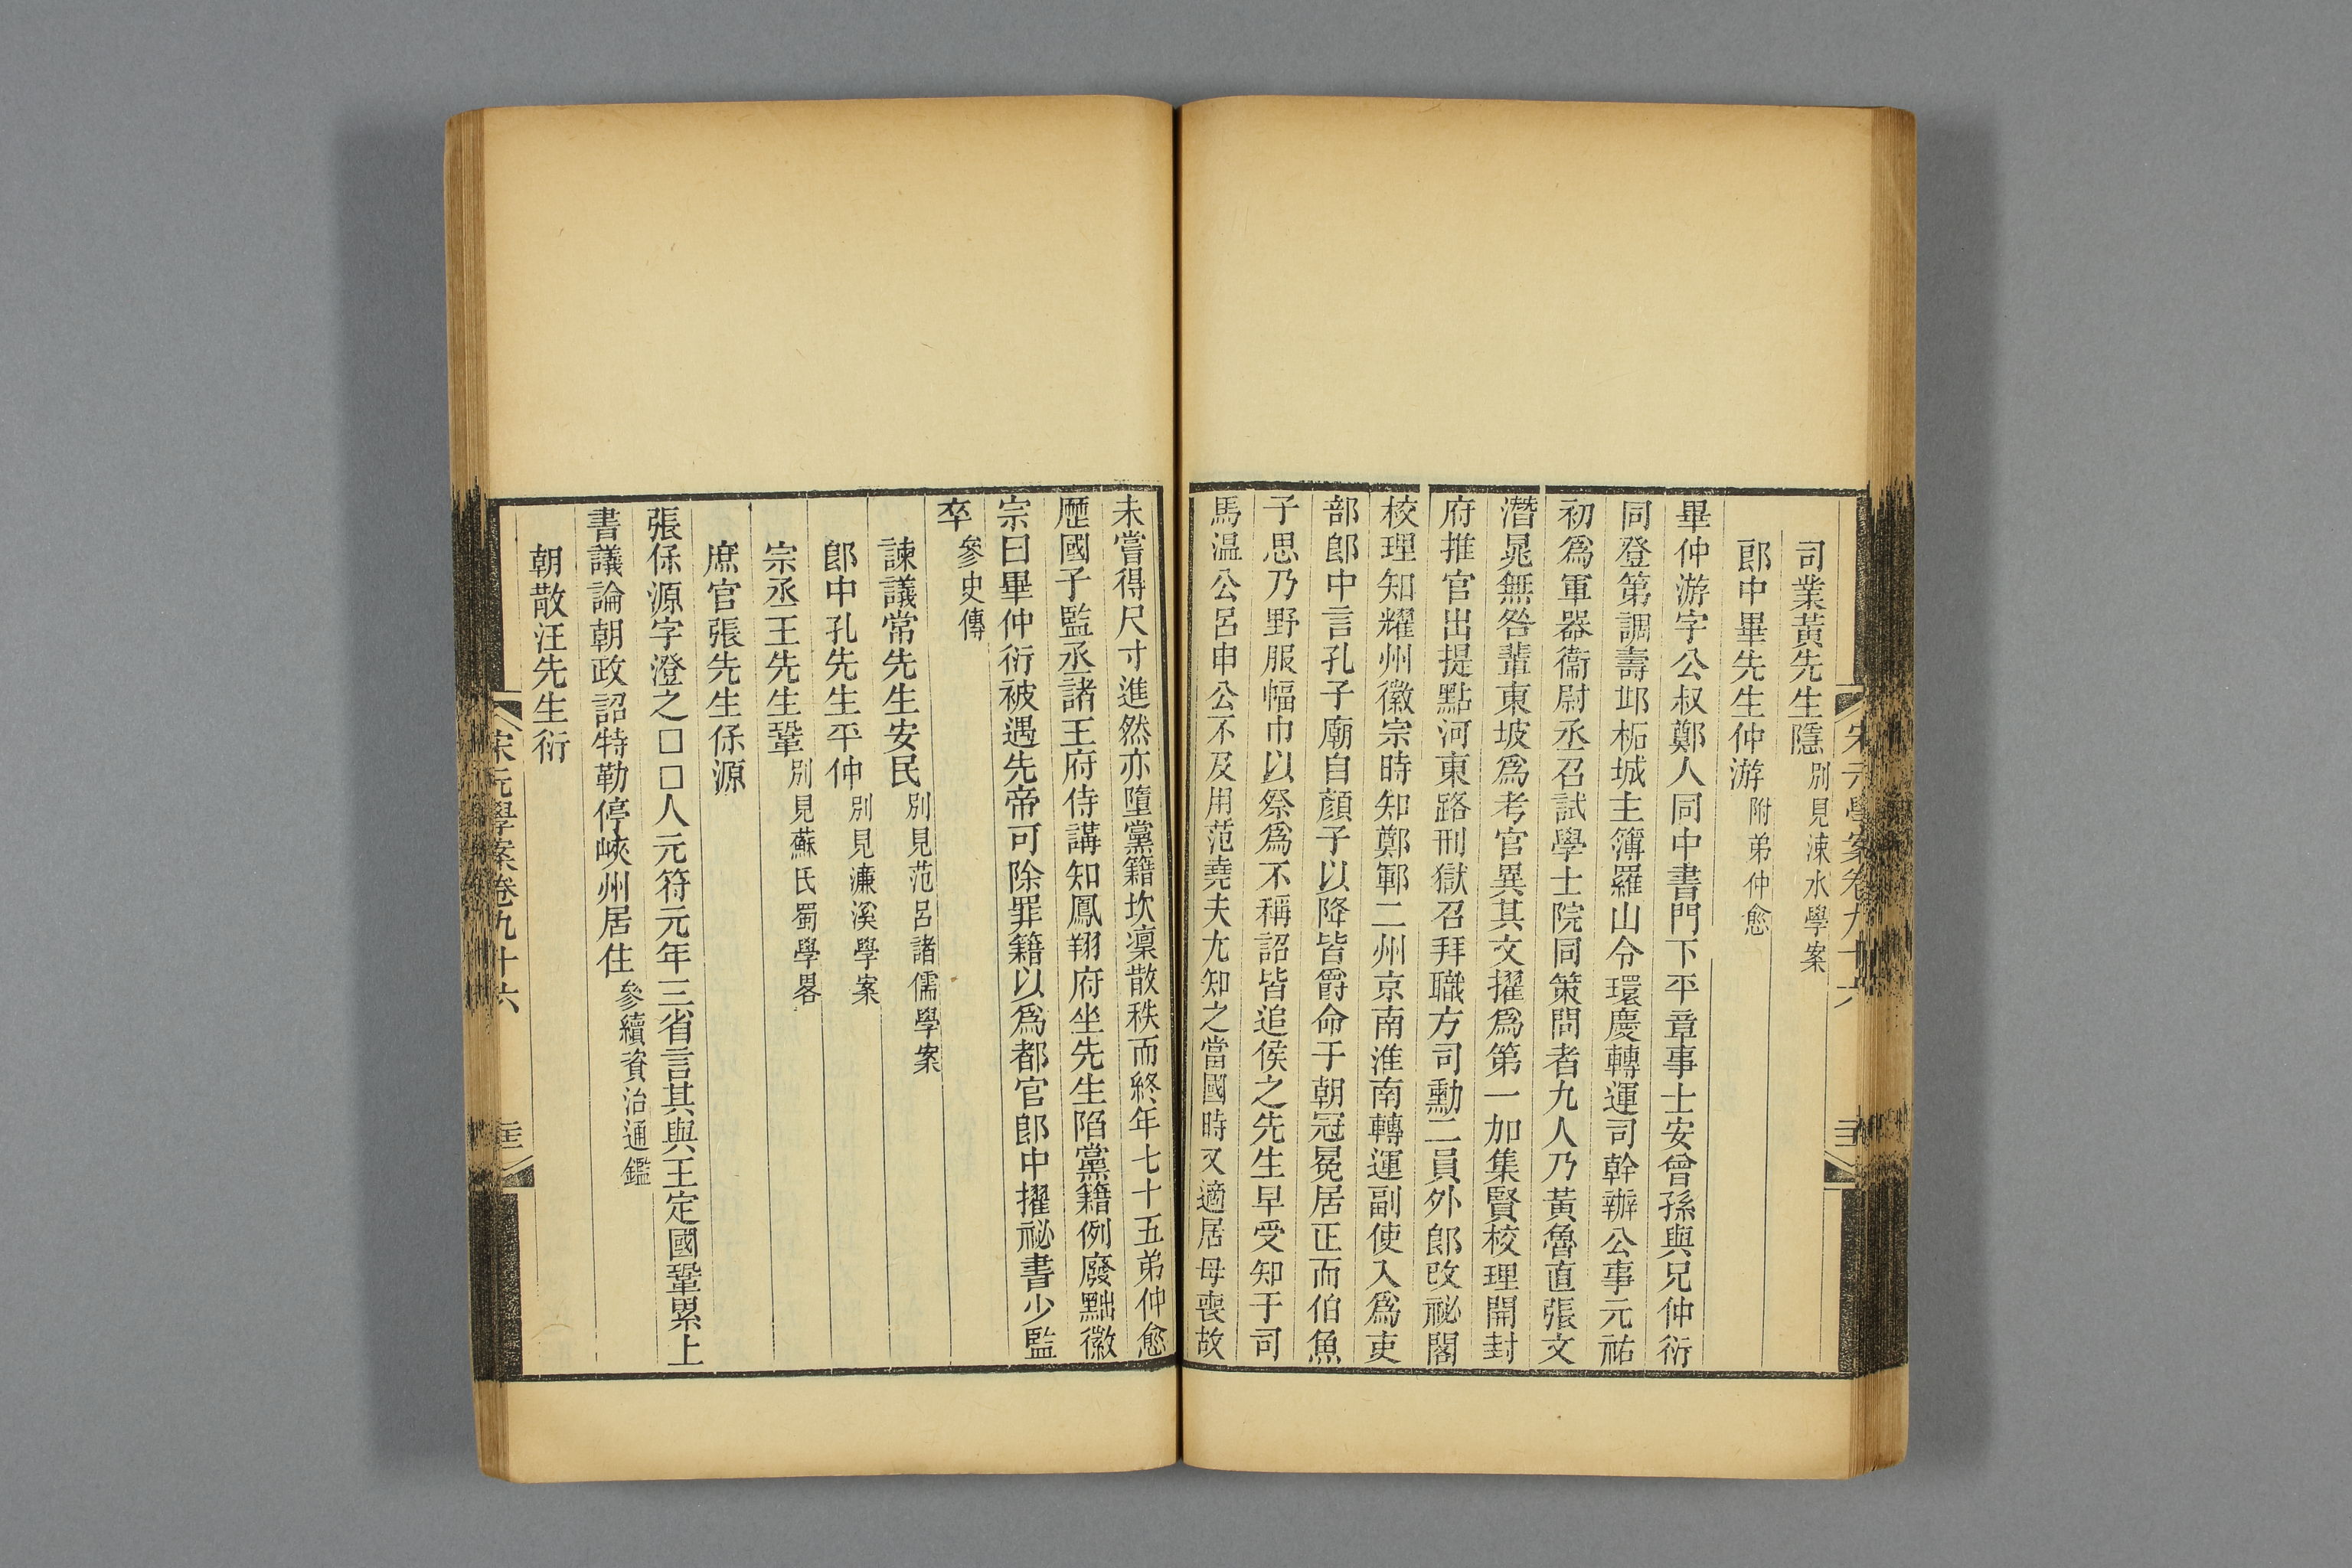 宋元學案卷九十六
司業黃先生隱別見涑水學案
郎中畢先生仲游附弟仲愈
畢仲游字公叔鄭人同中書門下平章事士安曾孫與兄仲衍
同登第調壽邱柘城主簿羅山令環慶轉運司幹辦公事元祐
初爲軍器衞尉丞召試學士院同策問者九人乃黃魯直張文
潛晁無咎輩東坡爲考官異其文擢爲第一加集賢校理開封
府推官出提點河東路刑獄召拜職方司勳二員外郎改祕閣
校理知耀州徽宗時知鄭鄆二州京南淮南轉運副使入爲吏
部郎中言孔子廟自顏子以降皆爵命于朝冠冕居正而伯魚
子思乃野服幅巾以祭爲不稱詔皆追侯之先生早受知于司
馬温公呂申公不及用范堯夫尤知之當國時又適居母喪故
未嘗得尺寸進然亦墮黨籍坎凛散秩而終年七十五弟仲愈
歷國子監丞諸王府侍講知鳳翔府坐先生陷黨籍例廢黜徽
宗曰畢仲衍被遇先帝可除罪籍以爲都官郎中擢祕書少監
卒參史傳
諫議常先生安民別見范呂諸儒學案
郎中孔先生平仲別見濂溪學案
宗丞王先生鞏別見蘇氏蜀學畧
庶官張先生保源
張保源字澄之□□人元符元年三省言其與王定國鞏累上
書議論朝政詔特勒停峽州居住參續資治通鑑
朝散汪先生衍
宋元學案卷九十六